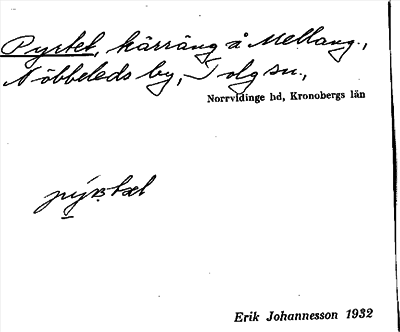 Pyrtet, kärräng å Mellang.,
Nöbbeleds by, Tolg sn.,
Norrvidinge hd, Kronobergs län
Erik Johannesson 1932